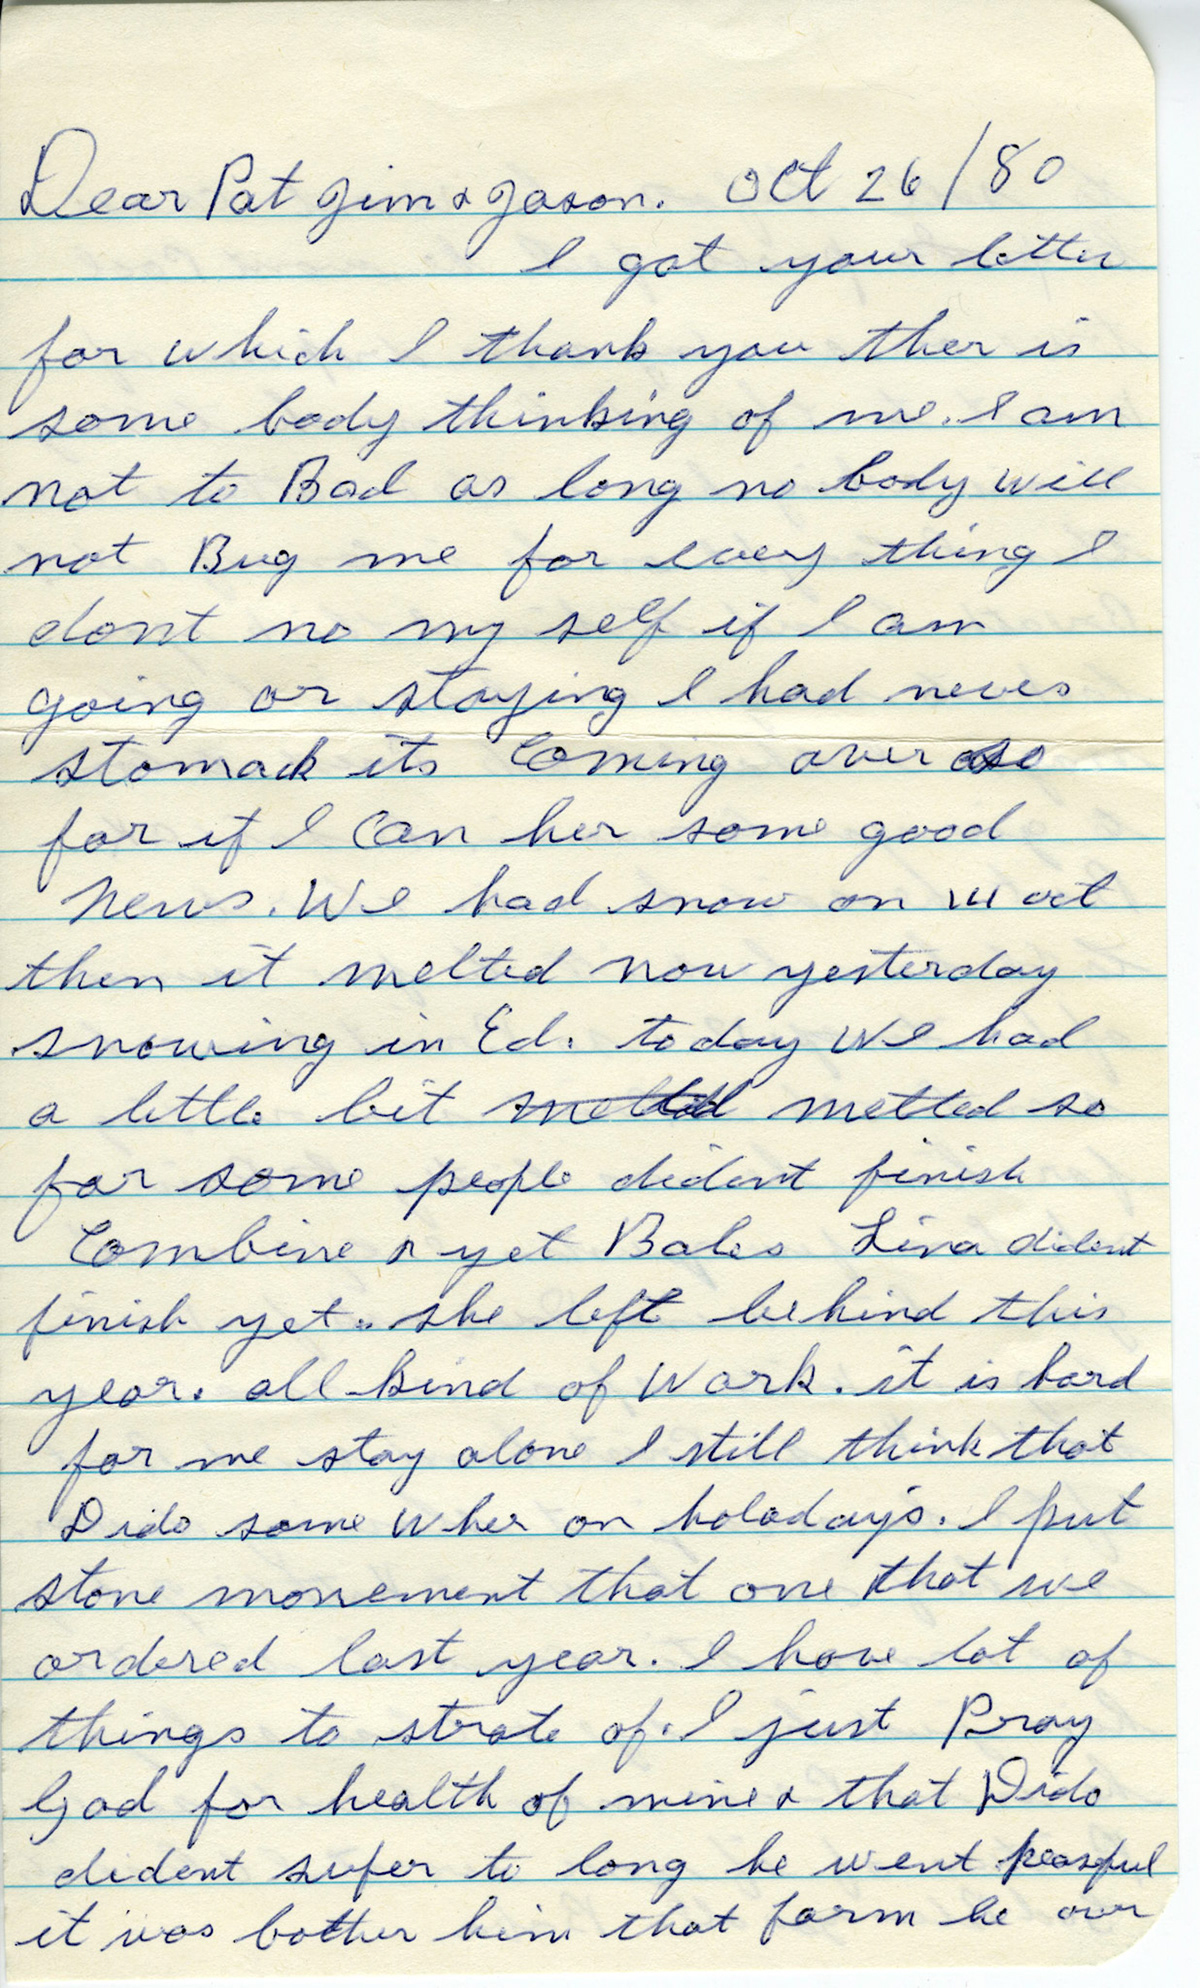 Dear Pat Jim & Jason. Oct 26/80
I got your letter
for which I thank you ther is
some body thinking of me. I am
not to Bad as long no body will
not Bug me for every thing I
dont no my self if I am
going or staying I had neves
stomack its Coming over so
far if I Can her some good
News. We had snow on oct
then it melted now yesterday
snowing in Ed. today We had
a little bit melted so
far some people dident finish
Combine & yet Bales Lina dident
finish yet.. she left behind this
year. all kind of Work. it is hard
for me stay alone I still think that
Dido some Wher on holadays. I put
stone monement that one that we
ordered last year. I have lot of
things to strate of. I just Pray
God for health of mine & that Dido
dident sufer to long he went peasful
it was bother him that farm he over